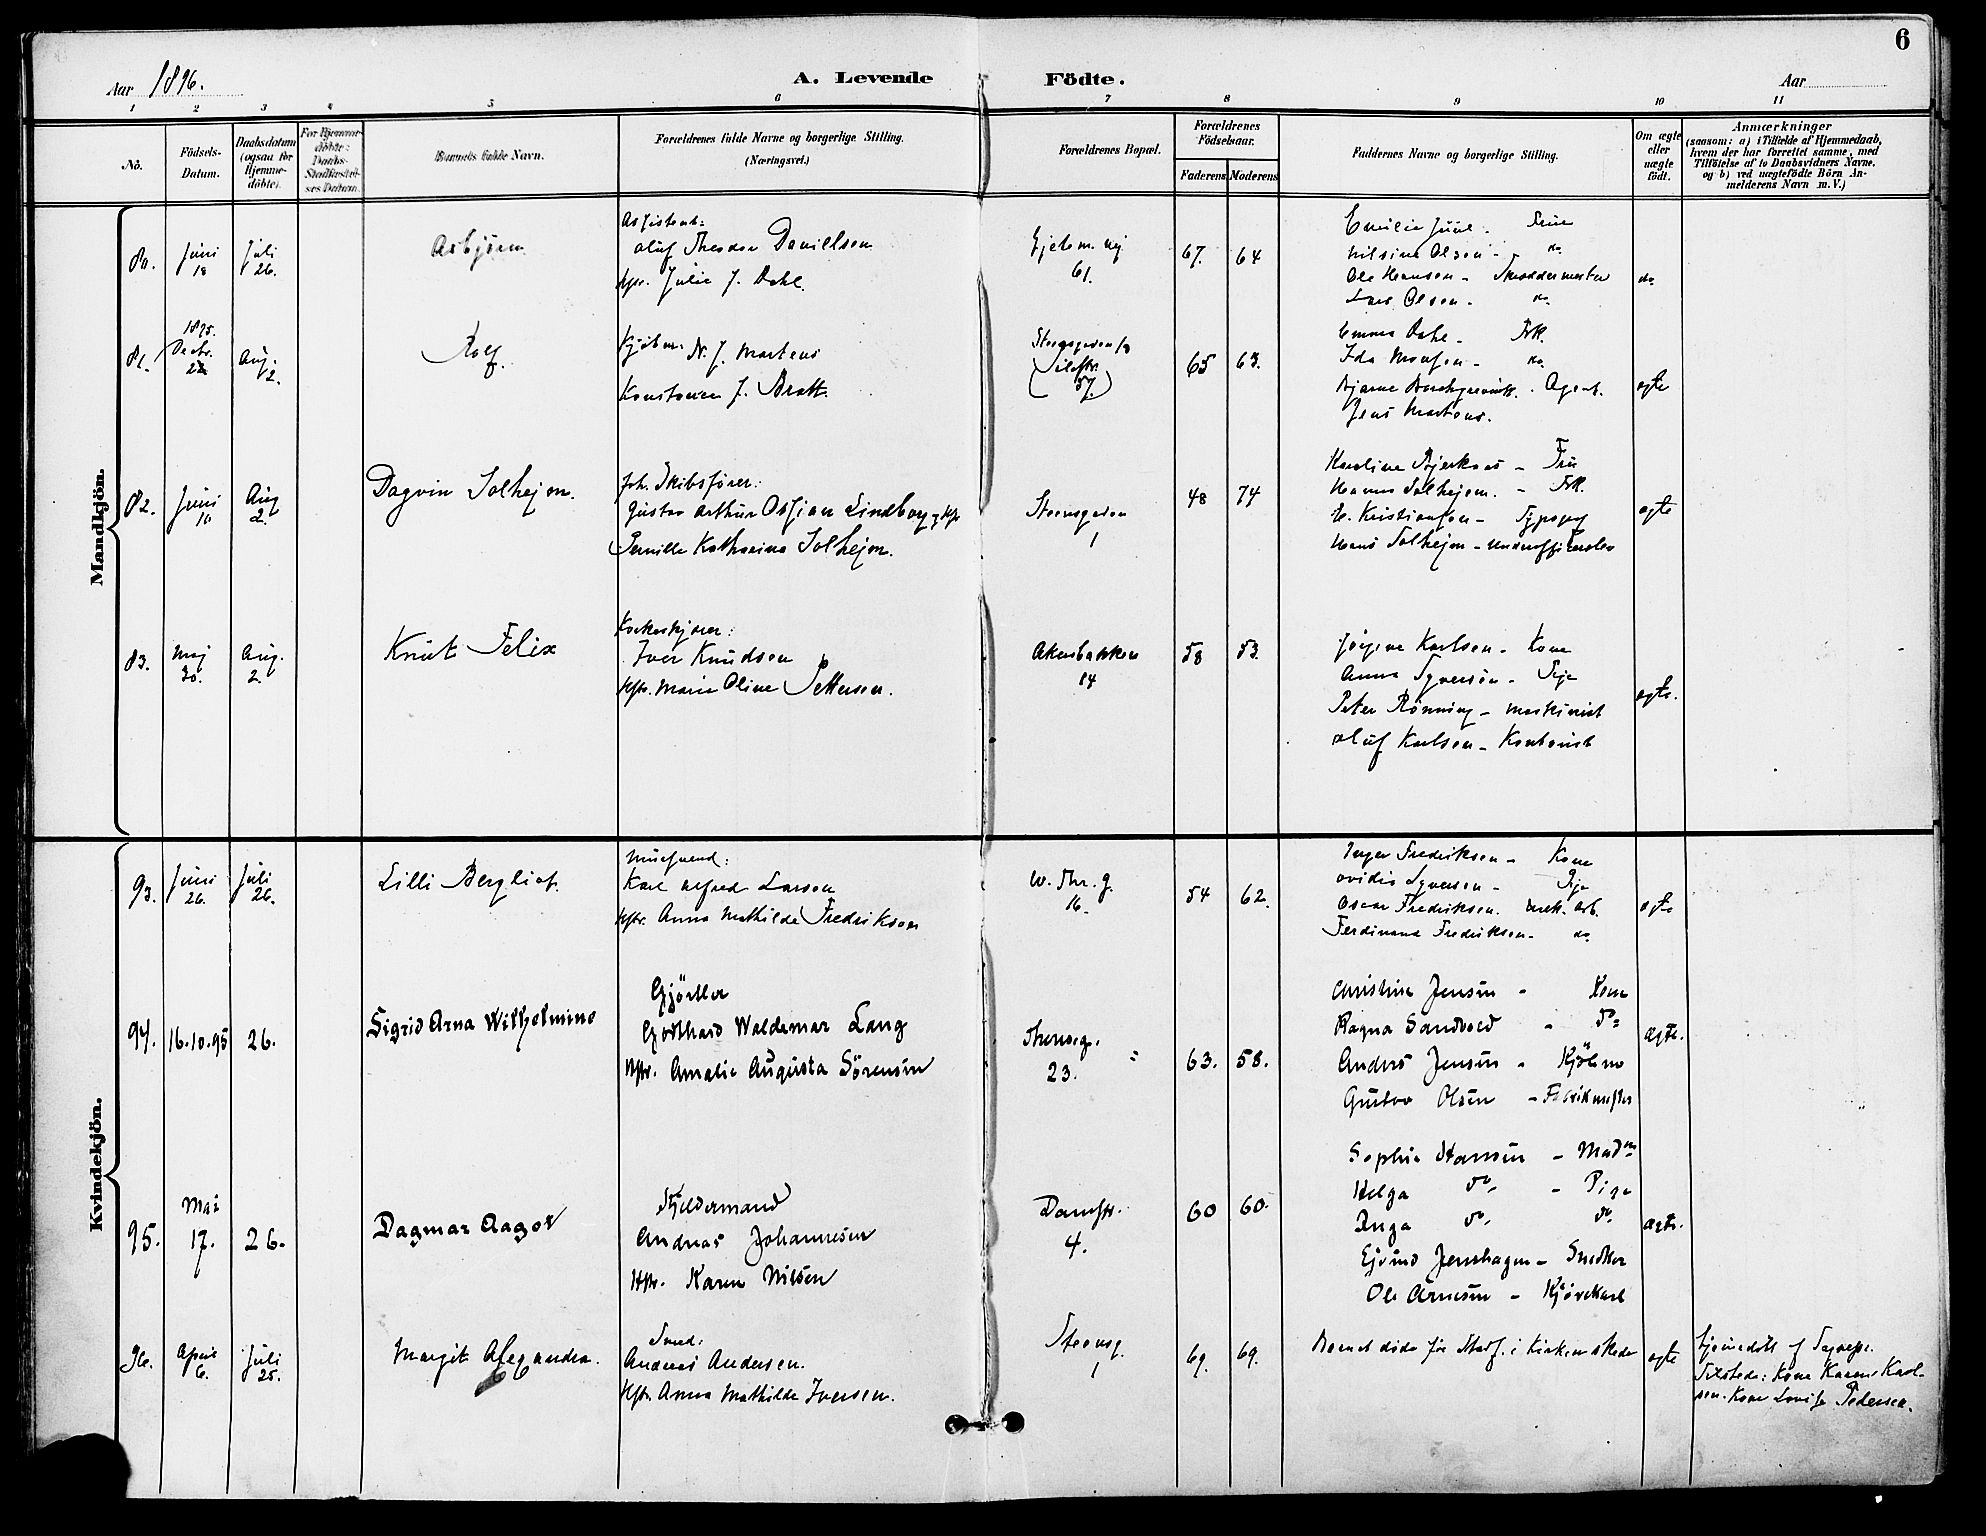 6
Aar 1896.
A. Levende Födte.
Aar
1 2 3 4 5 6 7 8 9 10 11
No.
Födsels-Datum.
Daabsdatum (ogsaa for Hjemme-döbte).
For Hjemme-döbte: Daabs-Stadfæstel-ses Datum.
Barnets fulde Navn.
Forældrenes fulde Navne og borgerlige Stilling. (Næringsvei.)
Forældrenes Bopæl.
Forældrenes Födselsaar.
Faderens Moderens
Faddernes Navne og borgerlige Stilling.
Om ægte eller uægte födt.
Anmærkninger
(saasom: a) i Tilfælde af Hjemmedaab, hvem der har forrettet samme, med Tilföielse af to Daabsvidners Navne, og b) ved uægtefödte Börn An-melderens Navn m. V.)
Mandkjön.
80. Juni 18 Juli 26. Asbjörn
Assistent:
Oluf Theodor Daniellsen
Hstr. Julie J. Dahl.
61.
67. 64
Emilie Juul - Frue
Nilsine Olsen - do
Ole Hansen - Skræddermester
Lars Olsen - do
do
81. 1895. Decbr. Aug. 2. Rolf.
Kjöbm. N. J. Martens
J. Bratt.
57.
65 63.
Emma Dahl - Frk.
Ida Monsen - do
Bjarne - Agent.
Jens Martens.
ægte
82. Juni 10 Aug 2. Dagvin Solhejm.
Skibsförer:
Gustav Arthur Ossian Lindberg og Hstr
Pernille Katharina Solhejm.
Steensgaden 1
48 74
Karoline Bjerknes - Fru
Hanna Solhejm. - Frk.
Kristiansen - Typograf
Hans Solhejm -
ægte
83. Maj 30. Aug. 2. Knut Felix
Iver Knudsen
Hstr. Marie Oline Pettersen.
Akersbakken 14
58 53.
Jörgine Karlsen - Kone
Anna Syversen - Pige
Peter Rönning - Maskinist
Oluf Karlsen - Kontorist
ægte.
Kvindekjön.
93. Juni 26. Juli 26. Lilli Bergliot.
Karl Alfred Larsen
Hstr. Anna Mathilde Fredriksen
W. Thr. g. 16.
54 62.
Inger Fredriksen - Kone
Ovidia Syversen - Pige
Oscar Fredriksen. Arb.
Ferdinand Fredriksen - do
ægte
94. 16.10.95 26. Sigrid Arna Wilhelmine
Gjörtler
Gotthard Waldemar Lang
Hstr. Amalie Augusta Sörensen
23.
63. 58.
Christine Jensen - Kone
Ragna Sandvold - Do
Anders Jensen - Kjöbm
Gustav Olsen - Fabrikmester
ægte.
95. Mai 17. 26. Dagmar Aagot
Andreas Johannesen
Hstr. Karen Nilsen
Damstr. 4.
60 60.
Sophie Hansen - Madm
Helga do - Pige
Inga do do
Ejvind Jenshagen - Snedker
Ole Arnesen - Kjörekarl
ægte.
96. April 6. Juli 25. Margit Alexandra.
Smed:
Andreas Andersen.
Hstr. Anna Mathilde Iversen.
Steensg. 1
69. 69.
Barnet döde för Stadf. i Kirken skede
ægte
Hjemmedöbt af
Tilstede: Kone Karen Karl-
sen. Kone Lovise Pedersen.